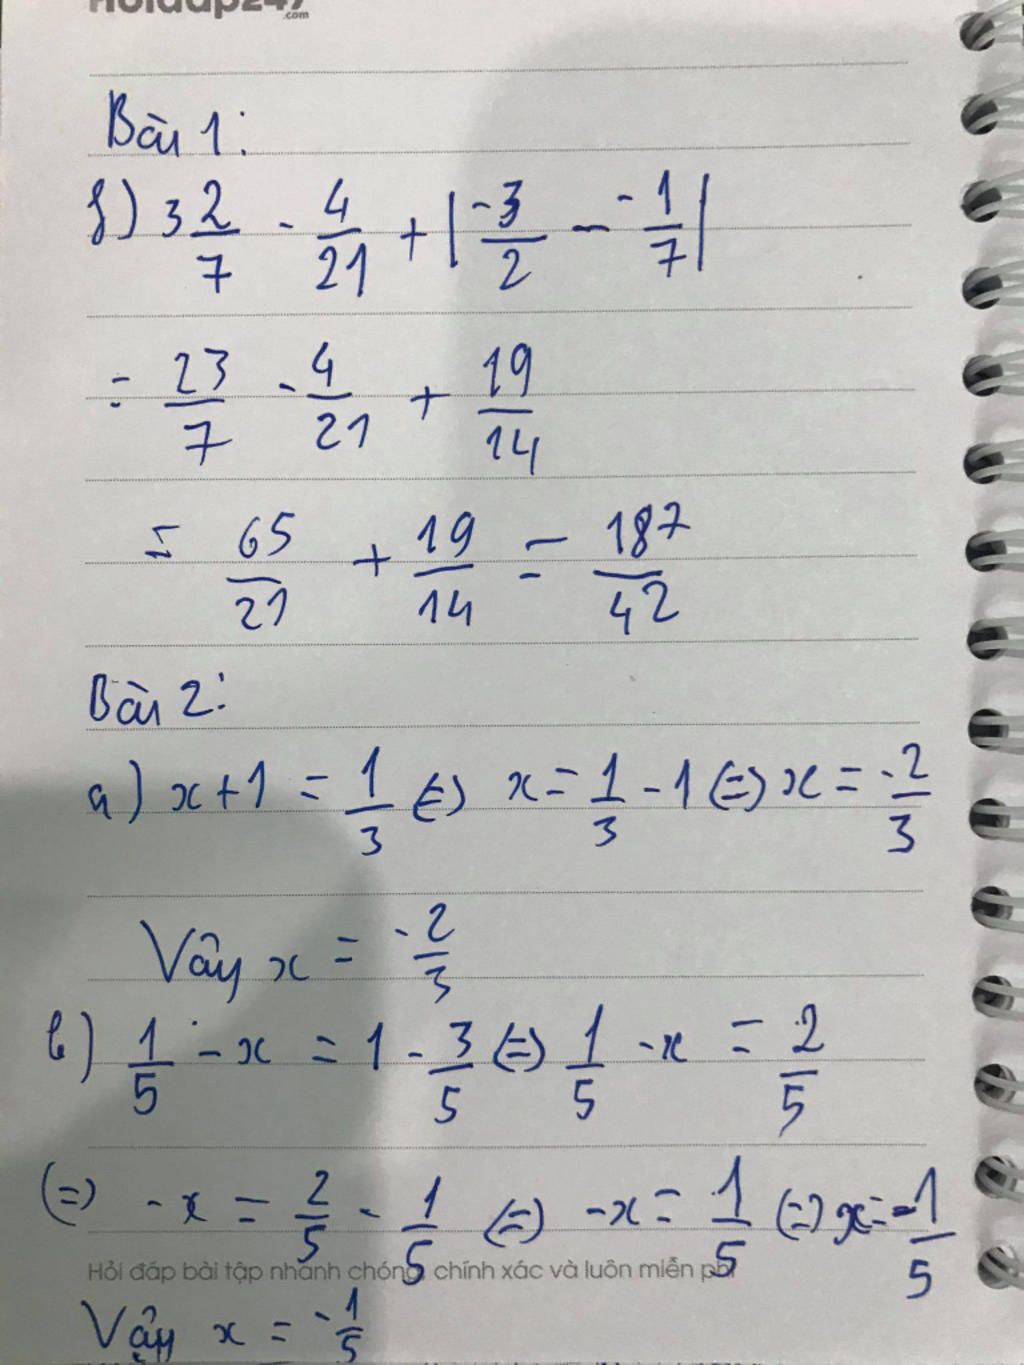 Hoidap247
.com
Bài 1:
f) 3 2/7 - 4/21 + |-3/2 - -1/7|
= 23/7 - 4/21 + 19/14
= 65/21 + 19/14 = 187/42
Bài 2:
a) x+1 = 1/3 (=) x = 1/3 - 1 (=) x = -2/3
Vây x = -2/3
b) 1/5 - x = 1 - 3/5 (=) 1/5 - x = 2/5
(=) -x = 2/5 - 1/5 (=) -x = 1/5 (=) x = -1/5
Hỏi đáp bài tập nhanh chóng, chính xác và luôn miễn phí
Vậy x = -1/5